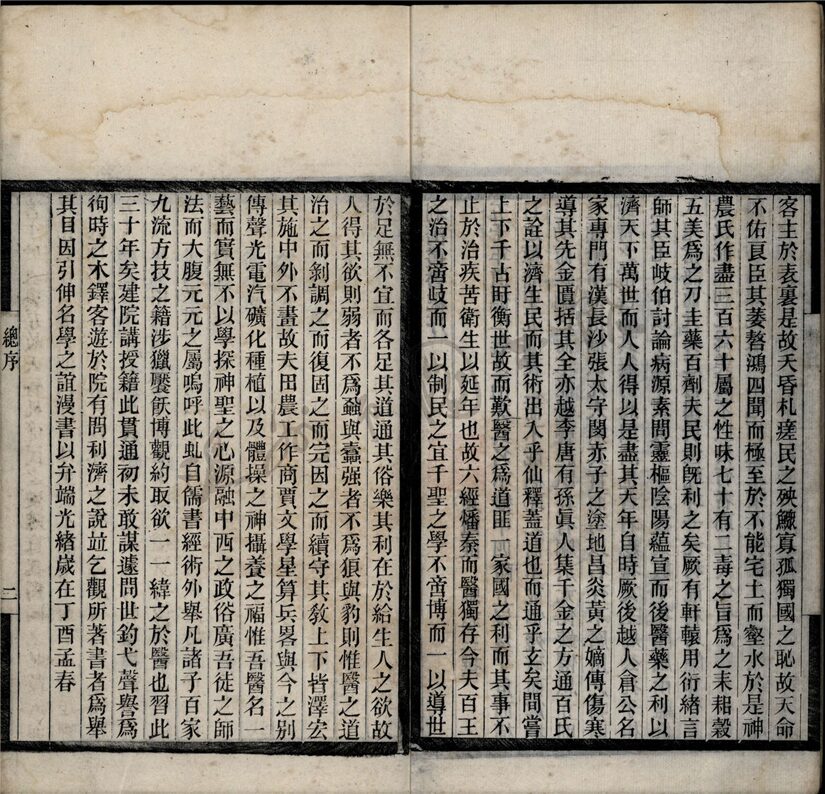 客主於表裏是故夭昏札瘥民之殃鰥寡孤獨國之恥故天命
不佑良臣其萎嗸鴻四聞而極至於不能宅土而壑水於是神
農氏作盡三百六十屬之性味七十有二毒之旨爲之耒耜穀
五美爲之刀圭藥百劑夫民則旣利之矣厥有軒轅用衍緒言
師其臣岐伯討論病源素問靈樞陰陽蘊宣而後醫藥之利以
濟天下萬世而人人得以是盡其天年自時厥後越人倉公名
家專門有漢長沙張太守閔赤子之塗地昌炎黃之嫡傳傷寒
導其先金匱括其全亦越李唐有孫眞人集千金之方通百氏
之詮以濟生民而其術出入乎仙釋蓋道也而通乎玄矣間嘗
上下千古盱衡世故而歎醫之爲道匪一家國之利而其事不
止於治疾苦衛生以延年也故六經燔秦而醫獨存今夫百王
之治不啻歧而一以制民之宜千聖之學不啻博而一以導世
於足無不宜而各足其道通其俗樂其利在於給生人之欲故
人得其欲則弱者不爲蝨與蠹强者不爲狼與豹則惟醫之道
治之而剝調之而復固之而完因之而續守其敎上下皆澤宏
其施中外不畫故夫田農工作商賈文學星算兵畧與今之別
傳聲光電汽礦化種植以及體操之神攝養之福惟吾醫名一
藝而實無不以學探神聖之心源融中西之政俗廣吾徒之師
法而大腹元元之屬嗚呼此虬自儒書經術外舉凡諸子百家
九流方技之籍涉獵饜飫博觀約取欲一一緯之於醫也習此
三十年矣建院講授籍此貫通初未敢謀遽問世釣弋聲譽爲
徇時之木鐸客遊於院有問利濟之說竝乞觀所著書者爲舉
其目因引伸名學之誼漫書以弁端光緒歲在丁酉孟春
總序
二